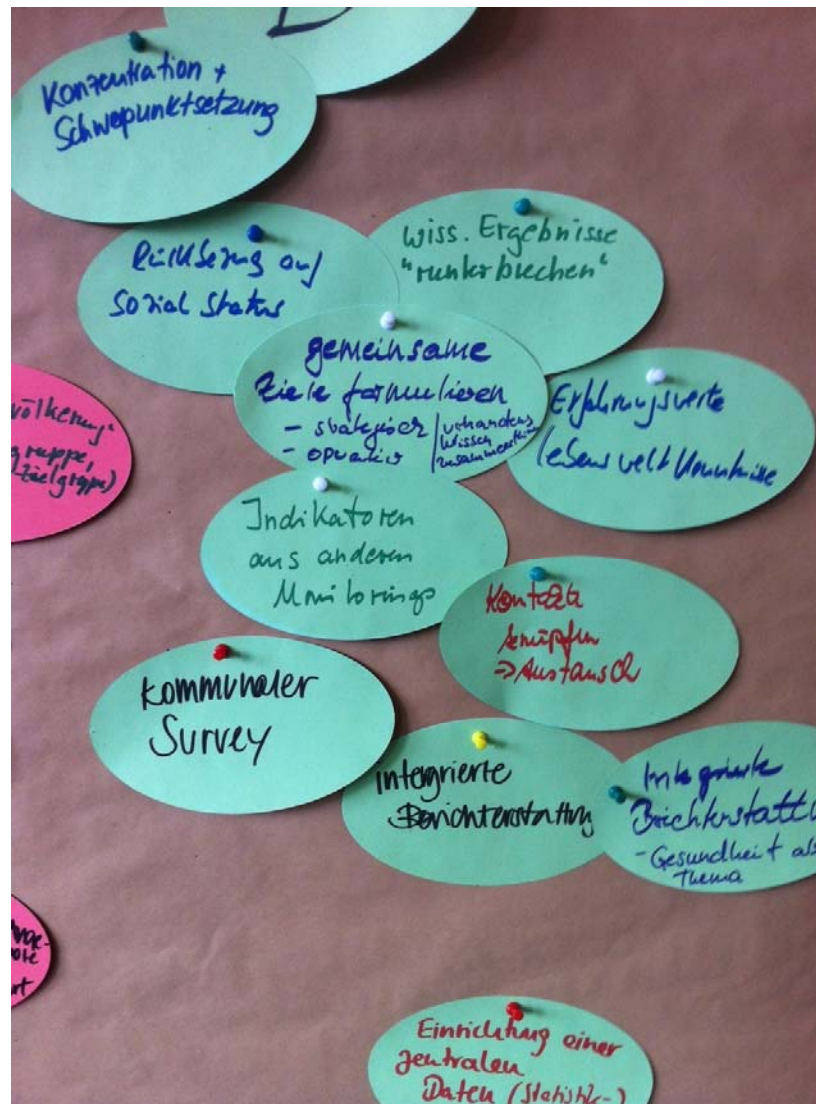 Konzentration +
Schwepunktsetzung
auf
Sozial Status
wiss. Ergebnisse
"runterbrechen"
gemeinsame
Ziele formulieren
- strategisch / vorhandenes
- operativ / Wissen
zusammenführen
Erfahrungswerte
lebensweltkenntnisse
völkerung-
gruppe,
Zielgruppe)
Indikatoren
aus anderen
Monitorings
Kontakte
knüpfen
⇒ Austausch
Kommunaler
Survey
intergrierte
Berichterstattung
Integrierte
Berichterstattu
- Gesundheit als
Thema
Einrichtung einer
zentralen
Daten (Statistik-)